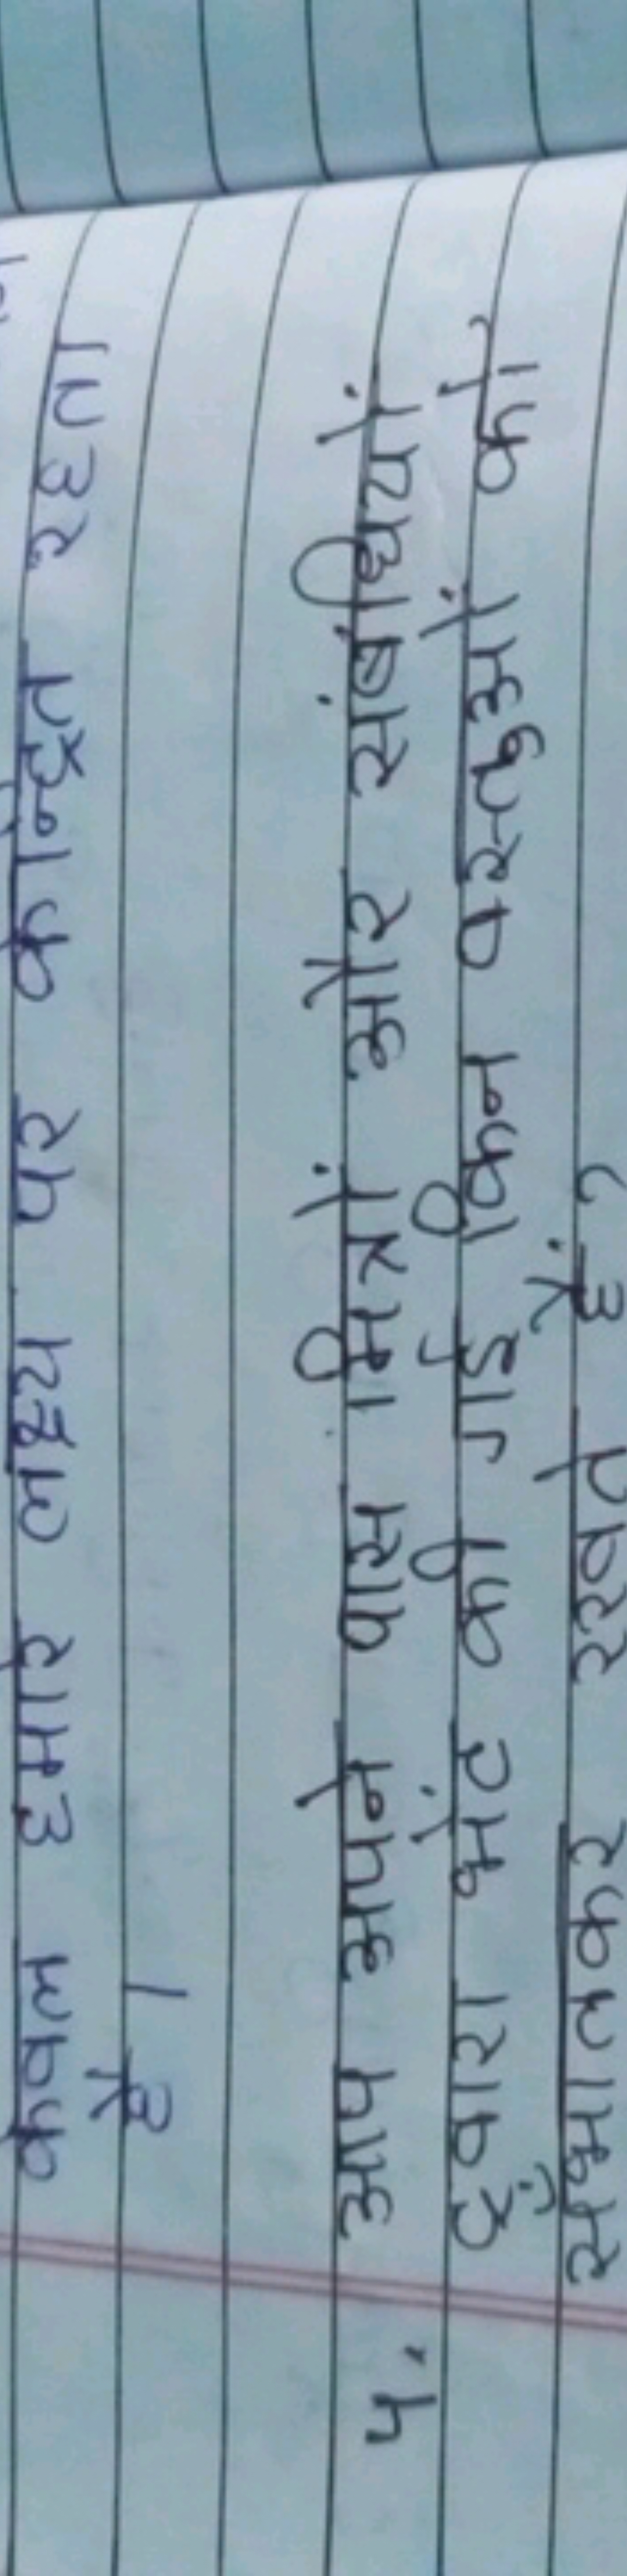 केवल हमारे लक्ष्य पर केंद्रित रहता
है।
५. आप अपने पास मित्रों और संबंधियों
द्वारा भेंट की गई किन वस्तुओं को
संभालकर रखते हैं ?